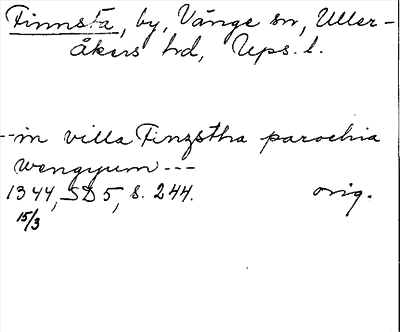 Finnsta, by, Vänge sn, Uller-
åkers hd, Ups. l.
--in villa Finzstha parochia
wengyum ---
1344, SD 5, s. 244. orig.
15/3